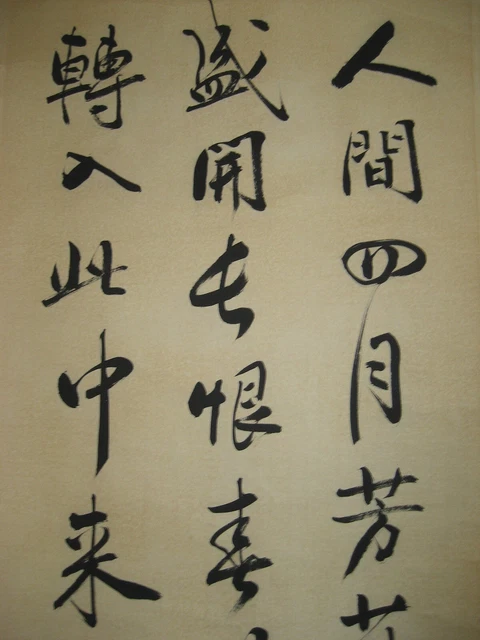 人間四月芳
盛開长恨春
轉入此中来